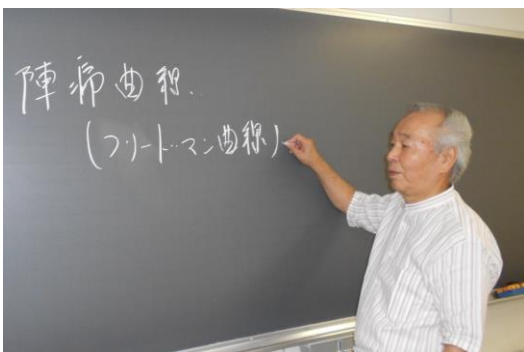 陣痛曲線
(フリードマン曲線)